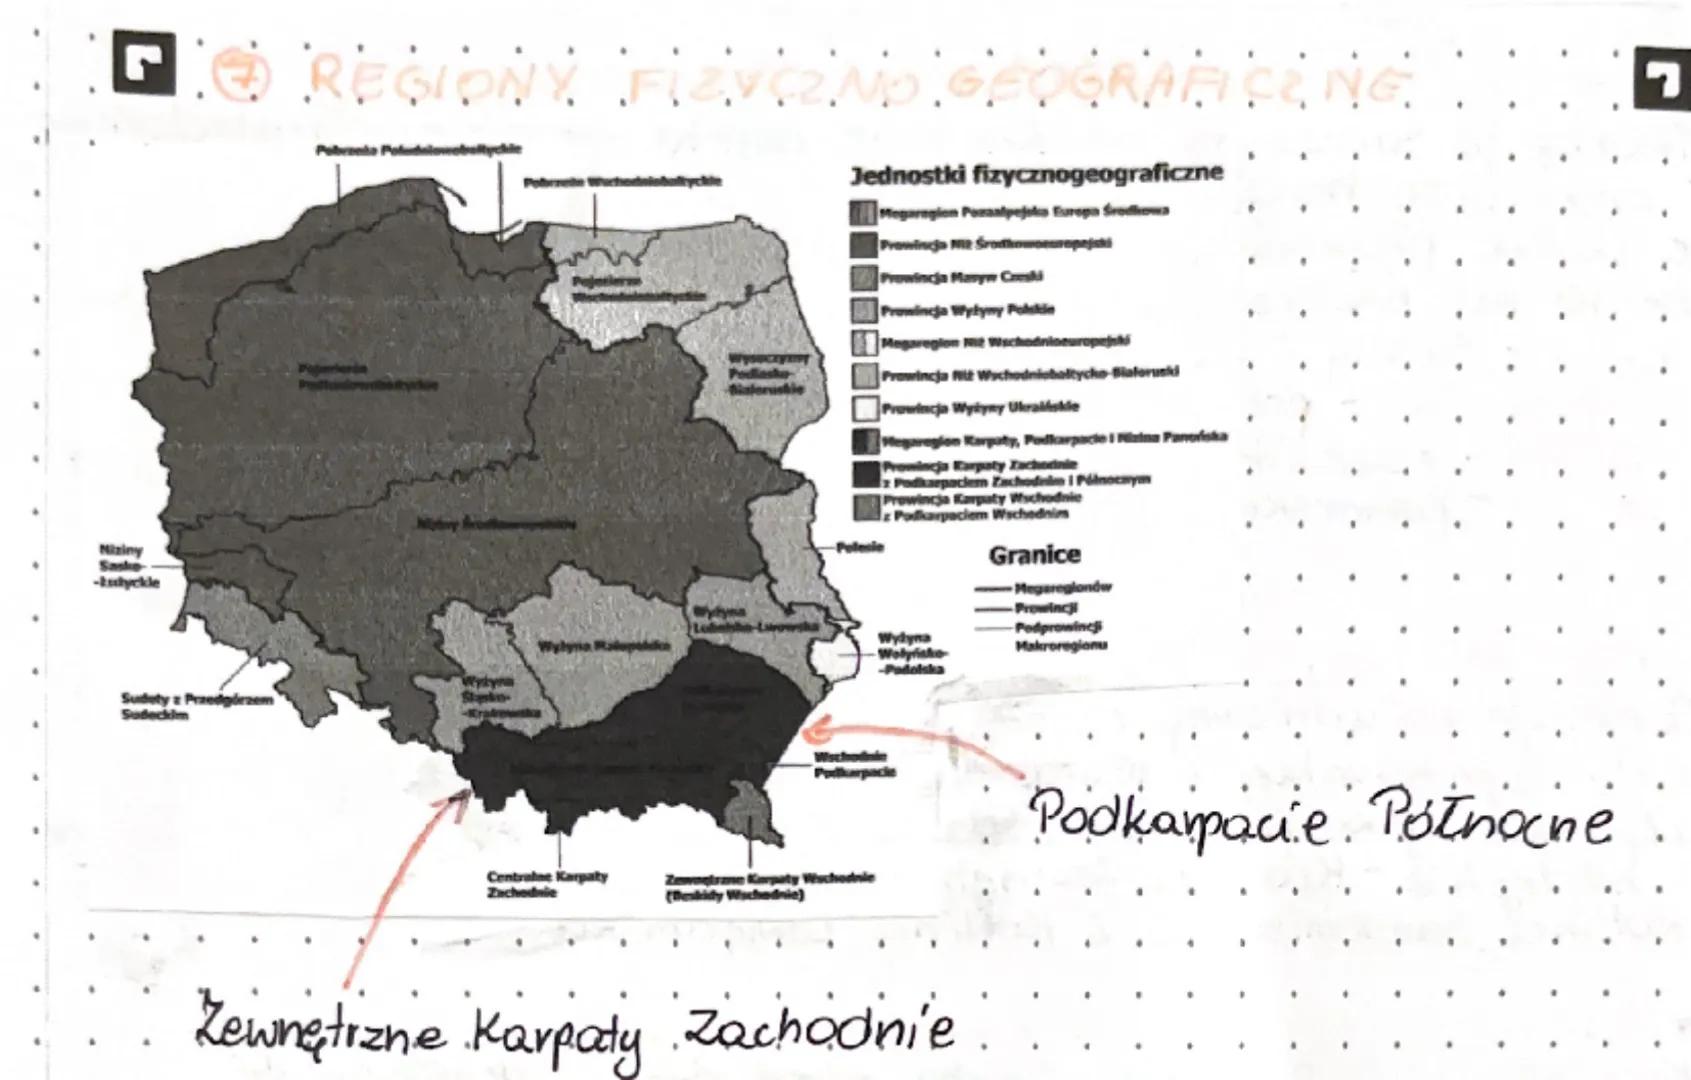 7 REGIONY FIZYCZNO GEOGRAFICZNE
Pobrzeża Południowobałtyckie
Pobrzeże Wschodniobałtyckie
Pojezierze
Wschodniobałtyckie
Wysoczyzny
Podlasko-
-Białoruskie
Pojezierze
Południowobałtyckie
Niziny Środkowopolskie
Niziny
Sasko-
-Łużyckie
Polesie
Wyżyna
Lubelsko-Lwowska
Wyżyna Małopolska
Wyżyna
Wołyńsko-
-Podolska
Wyżyna
Śląsko-
-Krakowska
Sudety z Przedgórzem
Sudeckim
Wschodnie
Podkarpacie
Centralne Karpaty
Zachodnie
Zewnętrzne Karpaty Wschodnie
(Beskidy Wschodnie)
Jednostki fizycznogeograficzne
Megaregion Pozaalpejska Europa Środkowa
Prowincja Niż Środkowoeuropejski
Prowincja Masyw Czeski
Prowincja Wyżyny Polskie
Megaregion Niż Wschodnioeuropejski
Prowincja Niż Wschodniobałtycko-Białoruski
Prowincja Wyżyny Ukraińskie
Megaregion Karpaty, Podkarpacie i Nizina Panońska
Prowincja Karpaty Zachodnie
z Podkarpaciem Zachodnim i Północnym
Prowincja Karpaty Wschodnie
z Podkarpaciem Wschodnim
Granice
Megaregionów
Prowincji
Podprowincji
Makroregionu
Podkarpacie Północne
Zewnętrzne Karpaty Zachodnie